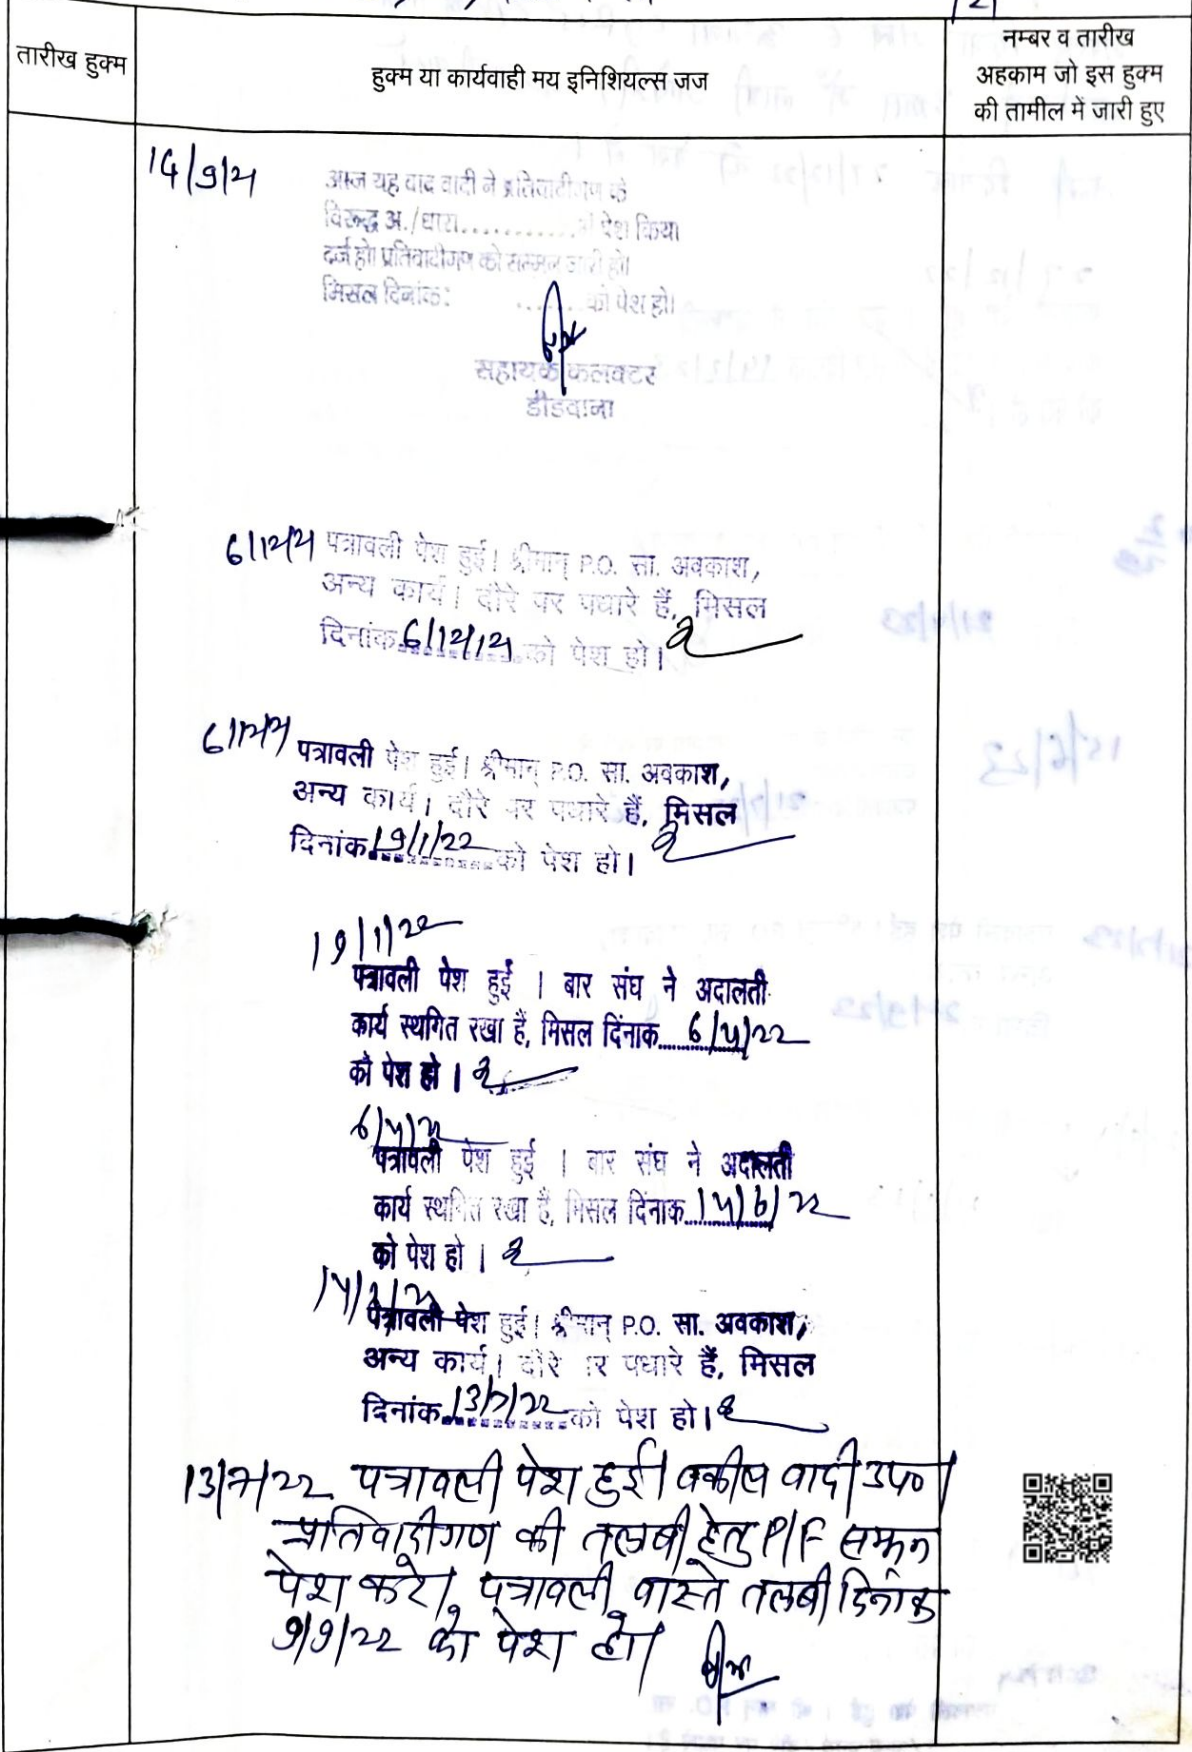 तारीख हुक्म
हुक्म या कार्यवाही मय इनिशियल्स जज
नम्बर व तारीख
अहकाम जो इस हुक्म
की तामील में जारी हुए
14/9/21
आज यह वाद वादी ने प्रतिवादीगण के
विरूद्ध अ./धारा........... में पेश किया
दर्ज हो। प्रतिवादीगण को सम्मन जारी हो।
मिसल दिनांक: ....... को पेश हो।
सहायक कलक्टर
डीडवाना
पत्रावली पेश हुई। श्रीमान् P.O. सा. अवकाश,
अन्य कार्य। दौरे पर पधारे हैं, मिसल
दिनांक 6/12/21 को पेश हो।
6/12/21 पत्रावली पेश हुई। श्रीमान् P.O. सा. अवकाश,
अन्य कार्य। दौरे पर पधारे हैं, मिसल
दिनांक 19/1/22 को पेश हो।
19/1/22
पत्रावली पेश हुई । बार संघ ने अदालती
कार्य स्थगित रखा हैं, मिसल दिंनाक 6/4/22
को पेश हो ।
6/4/22
पत्रावली पेश हुई । बार संघ ने अदालती
कार्य स्थगित रखा हैं, मिसल दिंनाक 14/6/22
को पेश हो ।
पत्रावली पेश हुई। श्रीमान् P.O. सा. अवकाश,
अन्य कार्य। दौरे पर पधारे हैं, मिसल
दिनांक 13/7/22 को पेश हो।
13/7/22 पत्रावली पेश हुई। वकील वादी उप०।
प्रतिवादीगण की तलबी हेतु P/F सम्मन
पेश करे। पत्रावली वास्ते तलबी दिनांक
9/9/22 को पेश हो।